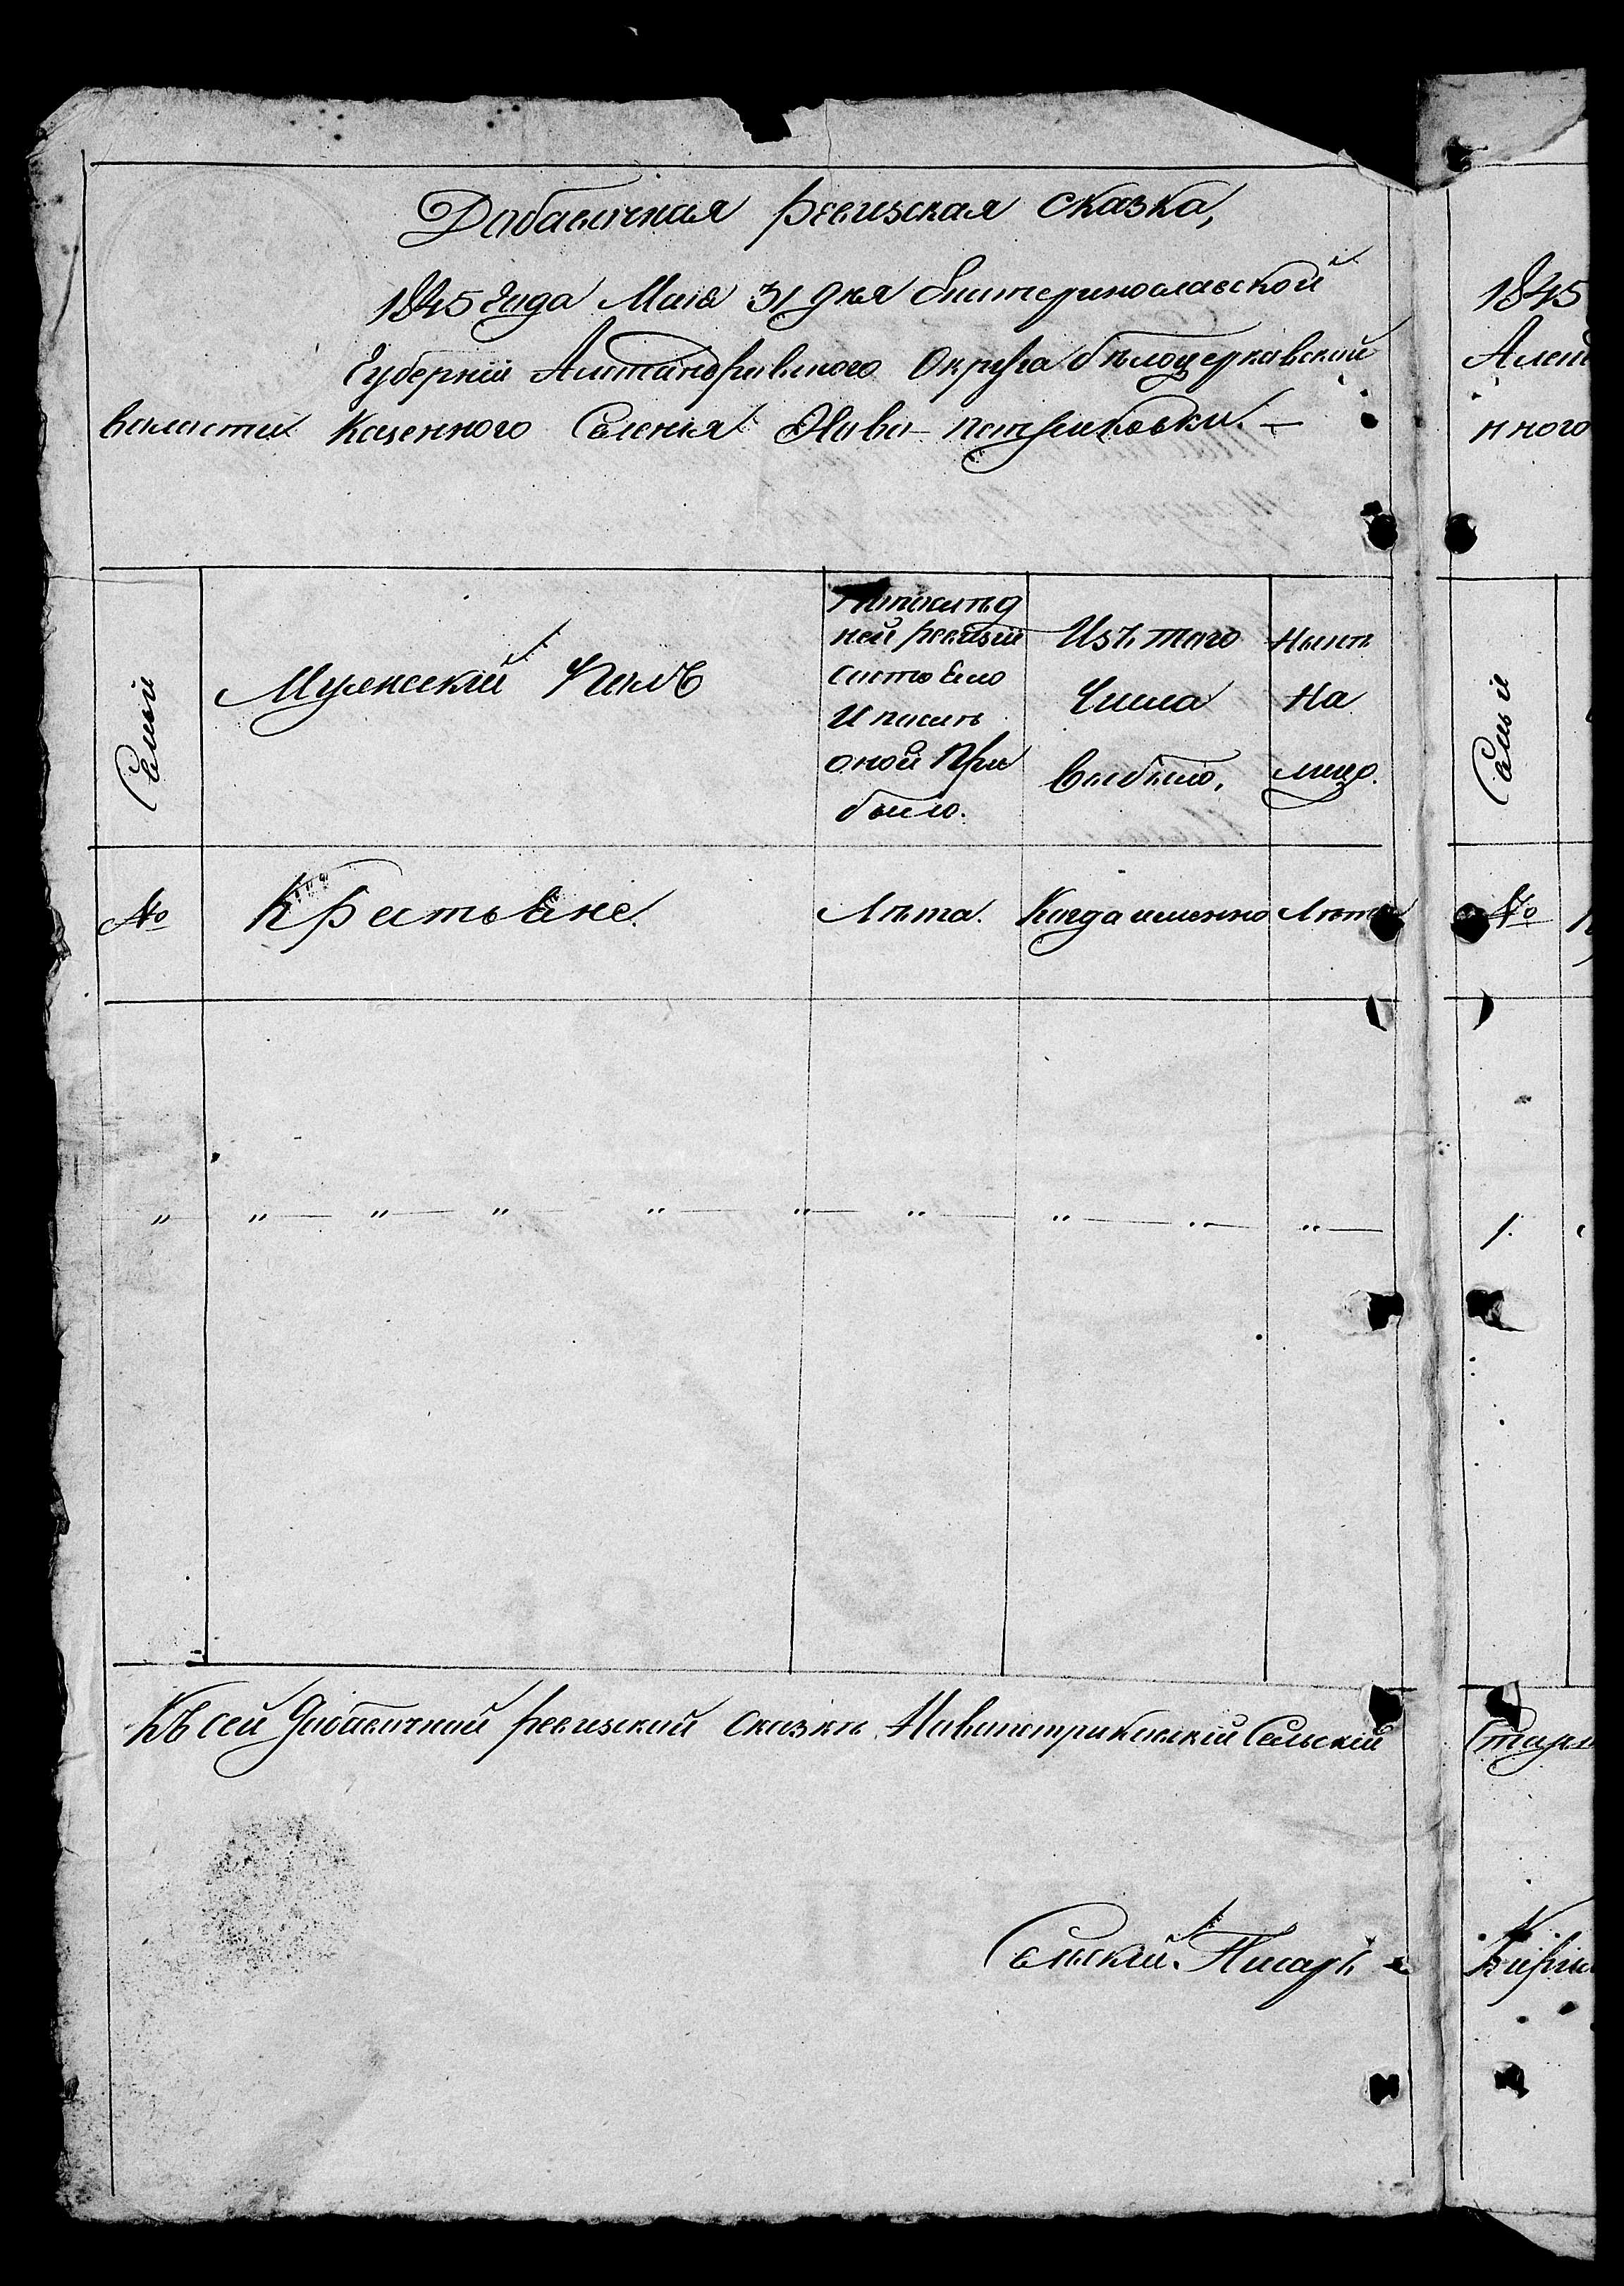 Добавочная ревизская сказка,
1845 года Мая 31 дня Екатеринославской
Губерніи Александровского Округа бѣлоцерковской
воласти Казенного Селенія Ново-петриковки. —
Семьи
Мужескій Полъ
Напослѣд
ней ревизіи
состояло
И послѣ
оной При
было.
Изъ того
Числа
Выбыло,
Нынѣ
На
лицо.
№
Крестьяне.
Лѣта.
Когда именно
Лѣта
" " — " — " — " — " — " — " — " — " —
Къ сей Добавочной ревизской сказкѣ Новопетриковскій Сельскій
Сельскій Писарь
1845
Алек
нного
Семьи
№
1.
Старш